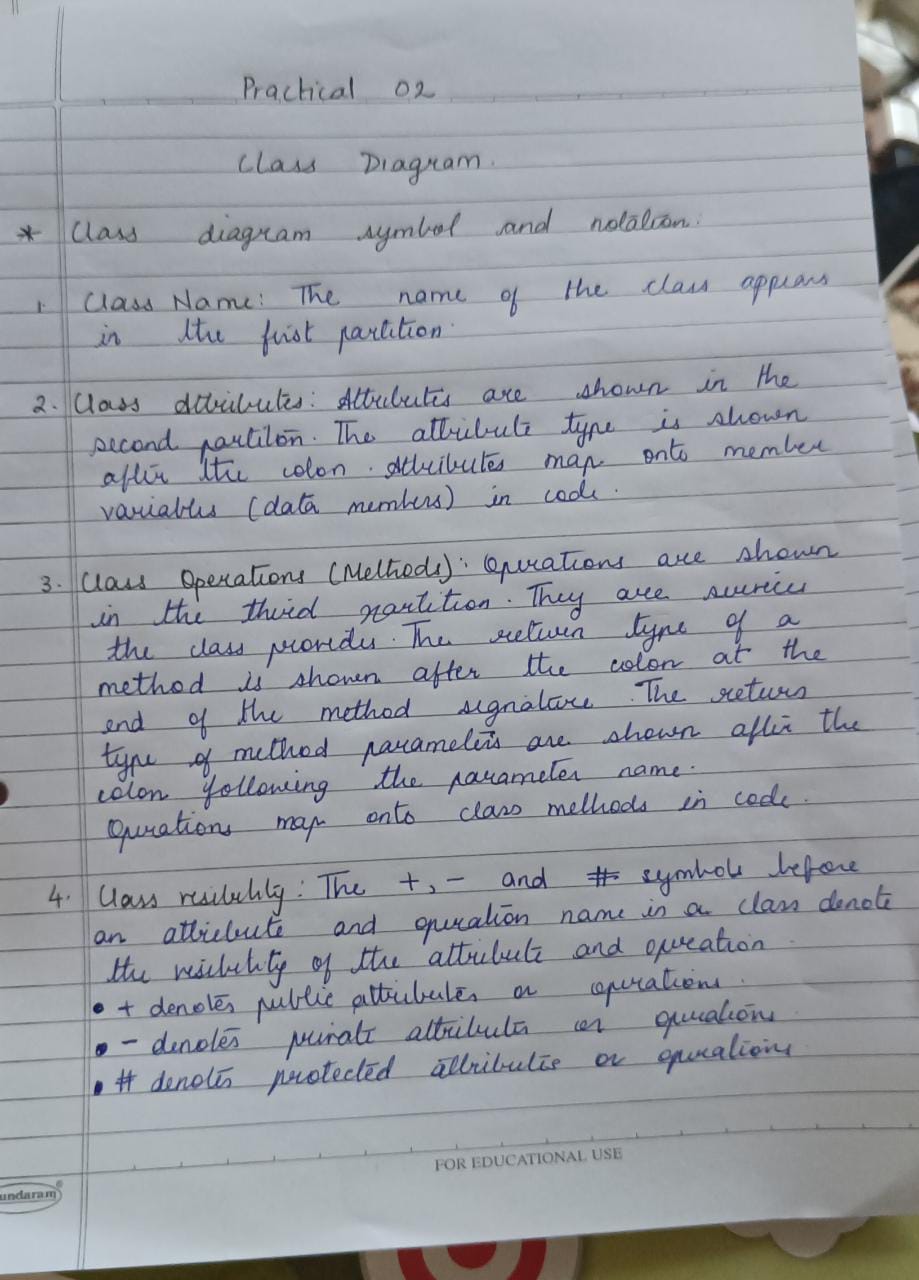 Practical 02
Class Diagram.
* Class diagram symbol and notation:
1. Class Name: The name of the class appears
in the first partition.
2. Class Attributes: Attributes are shown in the
second partition. The attribute type is shown
after the colon. Attributes map onto member
variables (data members) in code.
3. Class Operations (Methods): Operations are shown
in the third partition. They are services
the class provides. The return type of a
method is shown after the colon at the
end of the method signature. The return
type of method parameters are shown after the
colon following the parameter name.
Operations map onto class methods in code.
4. Class visibility: The +, - and # symbols before
an attribute and operation name in a class denote
the visibility of the attribute and operation
• + denotes public attributes or operations.
• - denotes private attributes or operations
• # denotes protected attributes or operations
FOR EDUCATIONAL USE
undaram